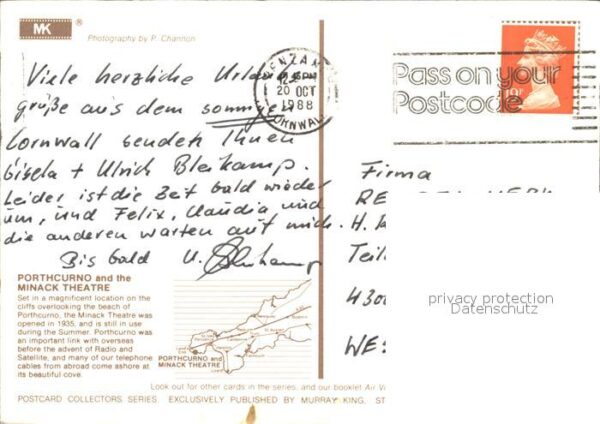 MK ®
Photography by P. Channon
PENZANCE
20 OCT
1988
CORNWALL
Pass on your
Postcode
Viele herzliche Urlaubs-
grüße aus dem sonnigen
Cornwall senden Ihnen
Gisela + Ulrich Bleikamp.
Leider ist die Zeit bald wieder
um, und Felix, Claudia und
die anderen warten auf mich.
Bis bald U. Bleikamp
Firma
H.
Teil
430
WE
privacy protection
Datenschutz
PORTHCURNO and the
MINACK THEATRE
Set in a magnificent location on the
cliffs overlooking the beach of
Porthcurno, the Minack Theatre was
opened in 1935, and is still in use
during the Summer. Porthcurno was
an important link with overseas
before the advent of Radio and
Satellite, and many of our telephone
cables from abroad come ashore at
its beautiful cove.
PORTHCURNO and
MINACK THEATRE
Look out for other cards in the series, and our booklet Air V
POSTCARD COLLECTORS SERIES EXCLUSIVELY PUBLISHED BY MURRAY KING, ST